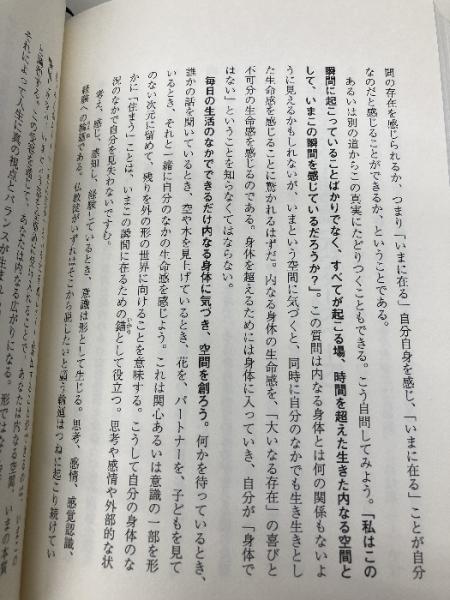 間の存在を感じられるか、つまり「いまに在る」自分自身を感じ、「いまに在る」ことが自分
なのだと感じることができるか、ということである。
あるいは別の道からこの真実にたどりつくこともできる。こう自問してみよう。「私はこの
瞬間に起こっていることばかりでなく、すべてが起こる場、時間を超えた生きた内なる空間と
して、いまこの瞬間を感じているだろうか？」。この質問は内なる身体とは何の関係もないよ
うに見えるかもしれないが、いまという空間に気づくと、同時に自分のなかでも生き生きとし
た生命感を感じることに驚かれるはずだ。内なる身体の生命感を、「大いなる存在」の喜びと
不可分の生命感を感じるのである。身体を超えるためには身体に入っていき、自分が「身体で
はない」ということを知らなくてはならない。
毎日の生活のなかでできるだけ内なる身体に気づき、空間を創ろう。何かを待っているとき、
誰かの話を聞いているとき、空や木を見上げているとき、花を、パートナーを、子どもを見て
いるとき、それと一緒に自分のなかの生命感を感じよう。これは関心あるいは意識の一部を形
のない次元に留めて、残りを外の形の世界に向けることを意味する。こうして自分の身体のな
かに「住まう」ことは、いまこの瞬間に在るための錨として役立つ。思考や感情や外部的な状
いかり
況のなかで自分を見失わないですむ。
考え、感じ、感知し、経験しているとき、意識は形として生じる。思考、感情、感覚認識、
経験への
である。仏教徒がいずれはそこから脱したいと
はつねに起こり続けてい
あなたは内なる空間、いまの本質
それによって人生に真の視点とバランスが生まれ
あなたは内なる広がりになる。形では